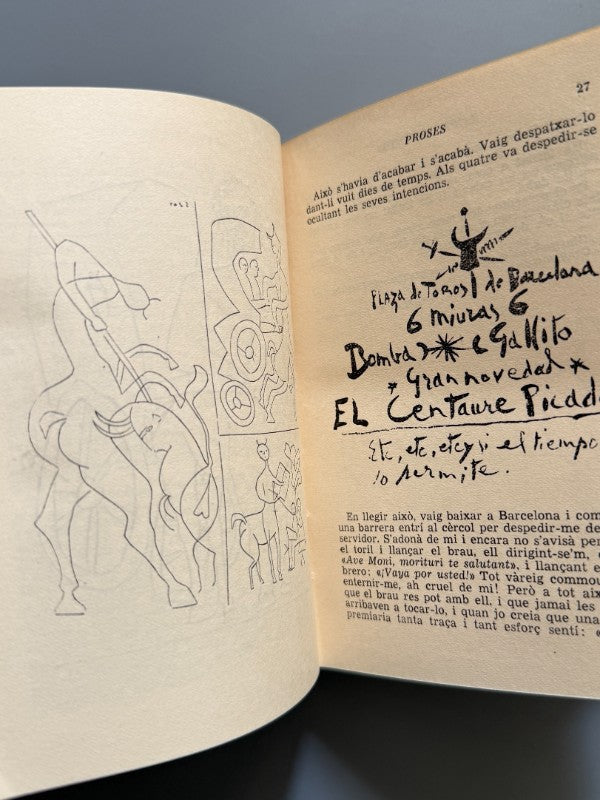 27
PROSES
Això s'havia d'acabar i s'acabà. Vaig despatxar-lo
dant-li vuit dies de temps. Als quatre va despedir-se
ocultant les seves intencions.
PLAZA de TOROS de Barcelona
6 miuras 6
Bomba e Gallito
Gran novedad
EL Centaure Picad
Etc, etc, etc y si el tiempo
lo permite.
En llegir això, vaig baixar a Barcelona i com
una barrera entrí al cèrcol per despedir-me de
servidor. S'adonà de mi i encara no s'avisà pe
el toril i llançar el brau, ell dirigint-se'm,
«Ave Moni, morituri te salutant», i llançant e
brero: «¡Vaya por usted!» Tot vàreig commou
enternir-me, ah cruel de mi! Però a tot aix
que el brau res pot amb ell, i que jamai les
arribaven a tocar-lo, i quan jo creia que una
premiaria tanta traça i tant esforç sentí: «